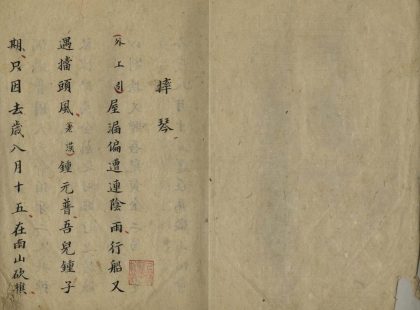 摔琴
（外上引）屋漏偏遭連陰雨行船又
遇擋頭風（老漢）鍾元普吾兒鍾子
期只因去歲八月十五在南山砍樵